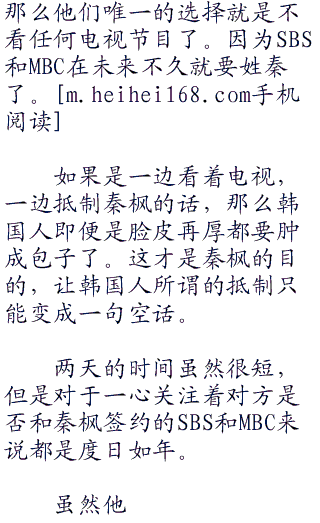 那么他们唯一的选择就是不
看任何电视节目了。因为SBS
和MBC在未来不久就要姓秦
了。[m.heihei168.com手机
阅读]
如果是一边看着电视，
一边抵制秦枫的话，那么韩
国人即便是脸皮再厚都要肿
成包子了。这才是秦枫的目
的，让韩国人所谓的抵制只
能变成一句空话。
两天的时间虽然很短，
但是对于一心关注着对方是
否和秦枫签约的SBS和MBC来
说都是度日如年。
虽然他